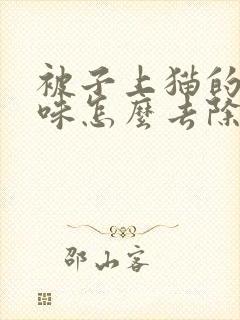 被子上猫的
味怎麼去除
邵山客